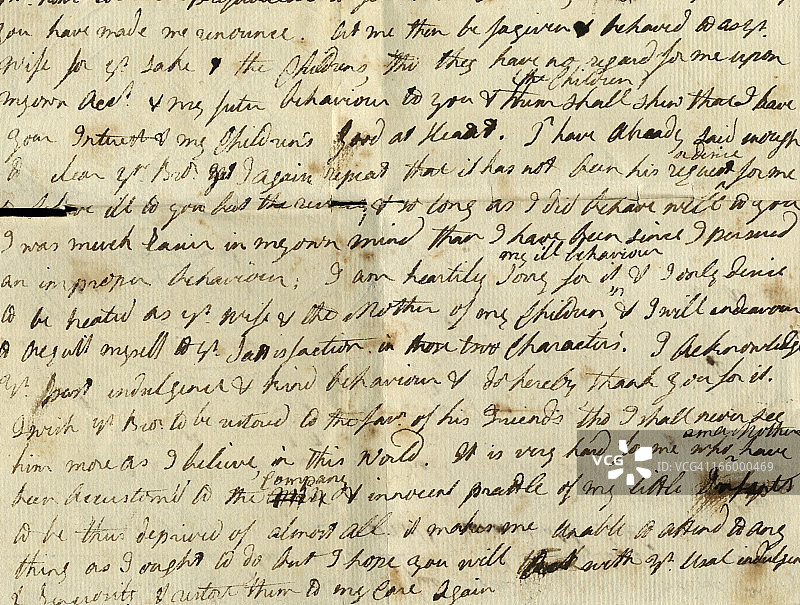 you have made me renounce. let me then be forgiven & behaved to as yr.
Wife for yr. sake & the Childrens, tho they have no regard for me upon
my own Acct. & my future behaviour to you & the Children them shall shew that I have
your Interest & my Children's good at Heart. I have Already said enough
to clear yr. Bror. yet I again repeat that it has not been his request or desire for me
to behave ill to you but the & so long as I did behave well to you
I was much Easier in my own mind than I have been since I persued
an improper behaviour; I am heartily sorry for it my ill behaviour & I only desire
to be treated as yr. Wife & the Mother of my Children, & I will endeavour
to regulate myself to yr. Satisfaction in those two Characters. I Acknowledge
yr. past indulgence & kind behaviour & do hereby thank you for it.
I wish yr. Bror. to be restored to the favr. of his Friends tho I shall never see
him more as I believe in this World. It is very hard to me who am a Mother & have
been Accustom'd to the Company & innocent prattle of my little Infants
to be thus deprived of almost all. it makes me unable to attend to any
thing as I ought to do but I hope you will with yr. Usal indulgen
& Generosity & restore them to my Care Again
VCG
VCG.COM
ID: VCG41166000469